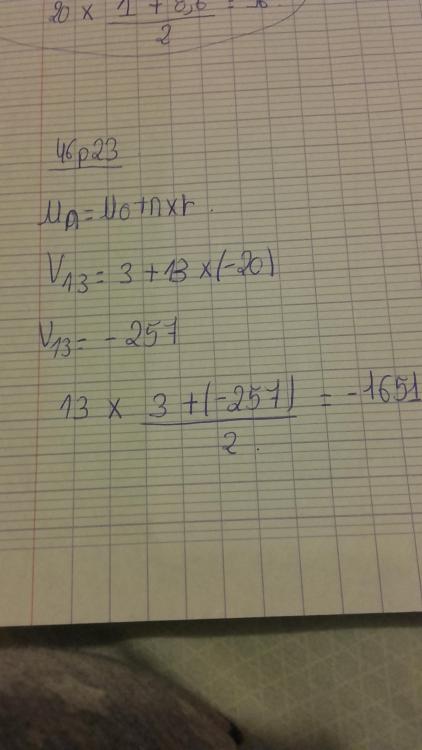 20 × (1 + 8,6)/2 = 
46p23
Un = U0 + n×r.
V13 = 3 + 13 × (-20)
V13 = - 257
13 × (3 + (-257))/2. = -1651